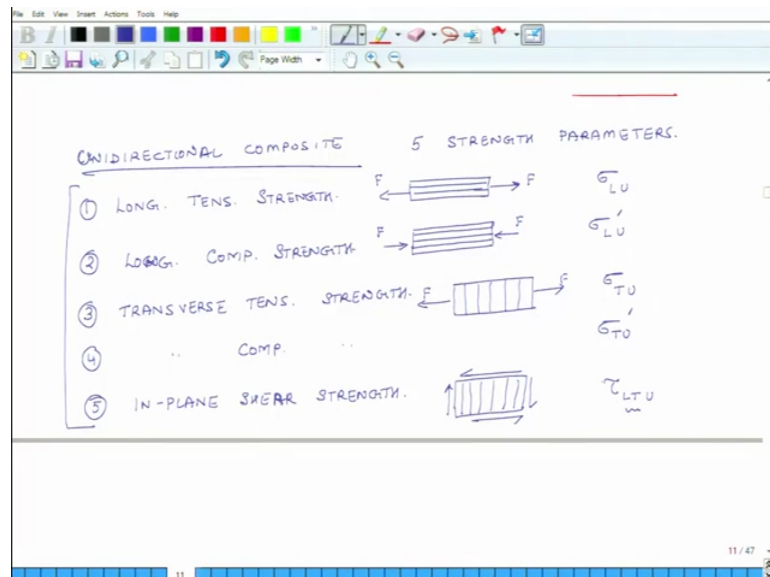 File Edit View Insert Actions Tools Help
B I
Page Width
UNIDIRECTIONAL COMPOSITE 5 STRENGTH PARAMETERS.
① LONG. TENS. STRENGTH. F F σLU
② LONG. COMP. STRENGTH F F σLU'
③ TRANSVERSE TENS. STRENGTH. F F σTU
④ " COMP. " σTU'
⑤ IN-PLANE SHEAR STRENGTH. τLTU
11 / 47
11